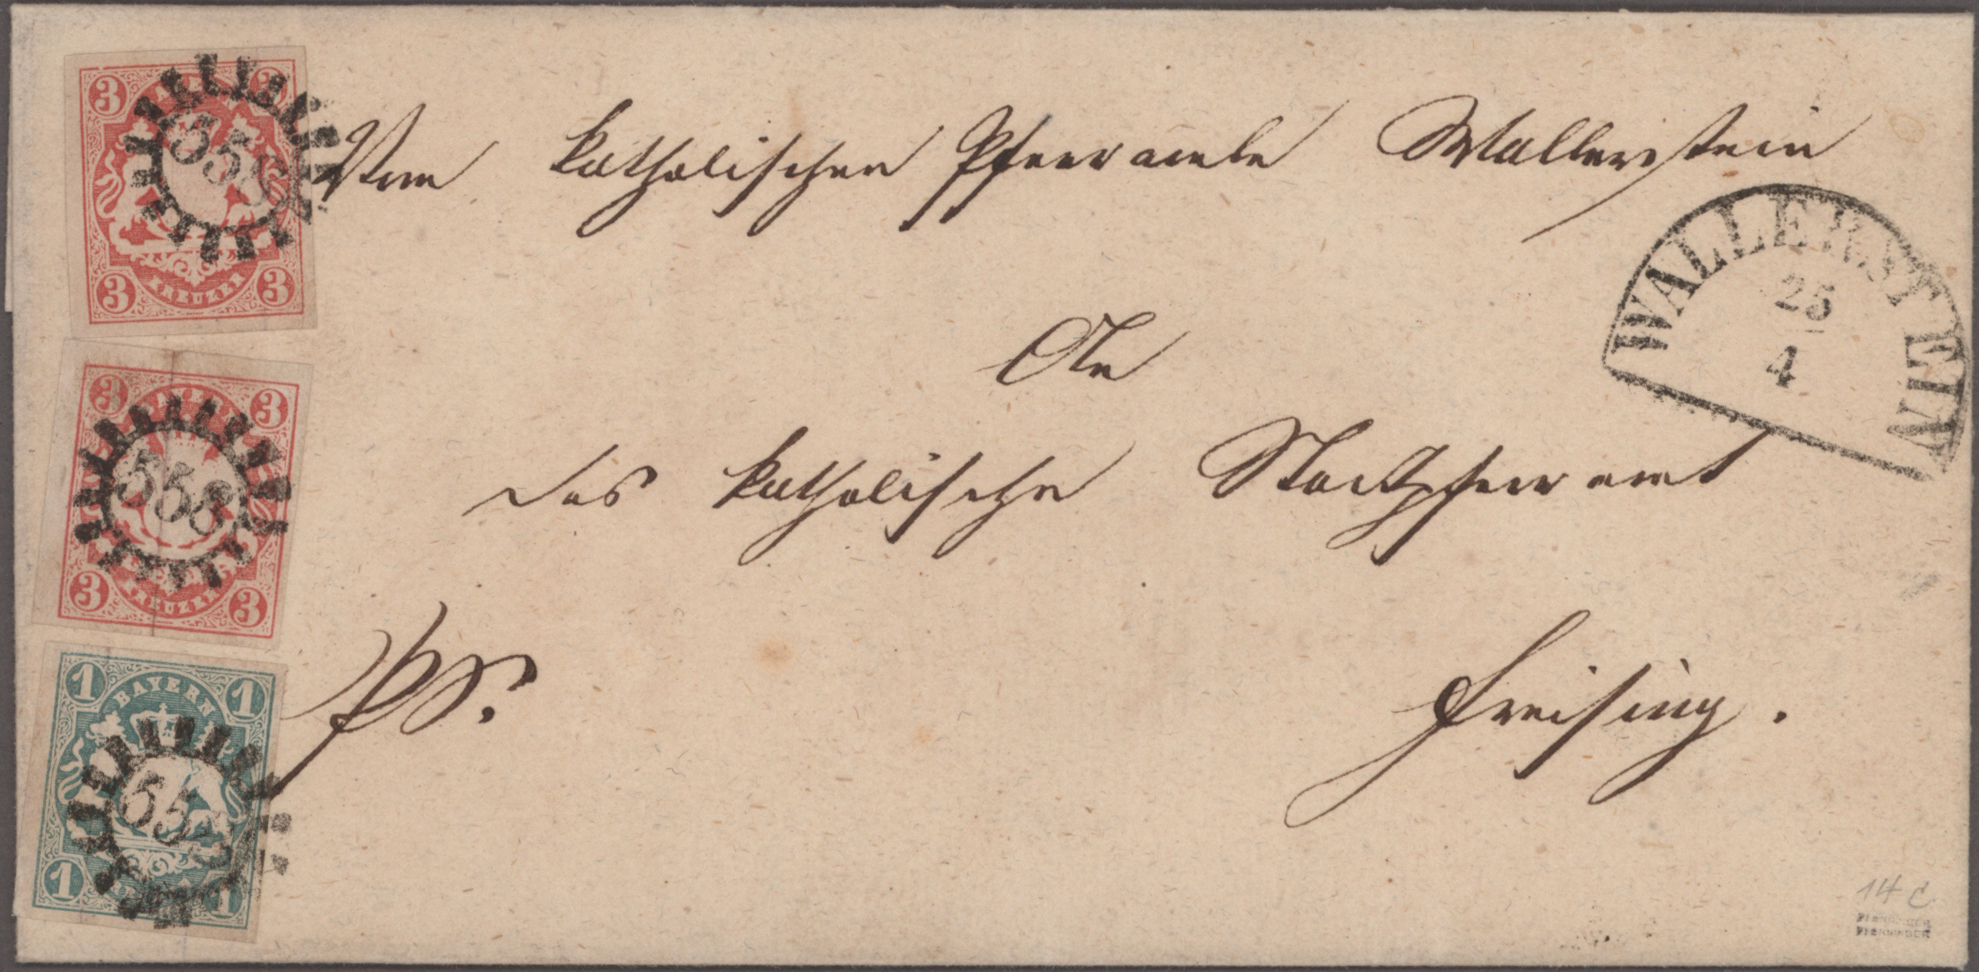 3 3
558
3 KREUZER 3
Vom katholischen Pfarramte Wallerstein
WALLERSTEIN
25
4
An
3 3
558
3 KREUZER 3
das katholische Stadtpfarramt
1 BAYERN 1
558
1 1
Freising.
14 C
PFENNINGER
PFENNINGER